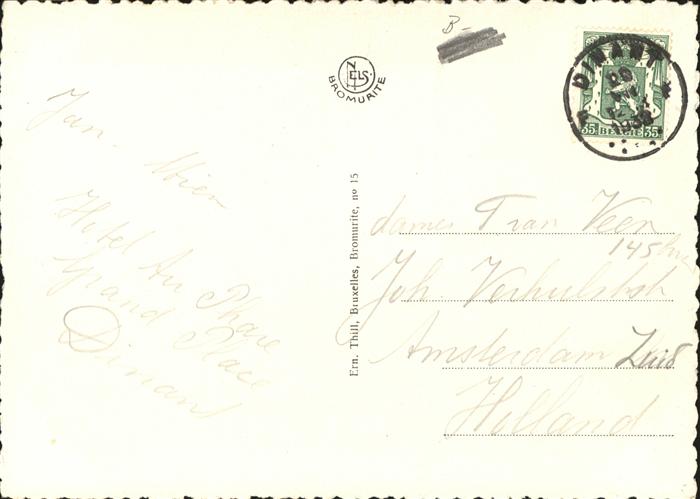 B-
NELS
BROMURITE
DINANT
1938
35 BELGIE 35
Jan - Wien
Hotel Au Phare
Grand Place
Dinant
Ern. Thill, Bruxelles, Bromurite, nº 15
dames T van Veen
145
Joh. Verhulststr
Amsterdam Zuid
Holland